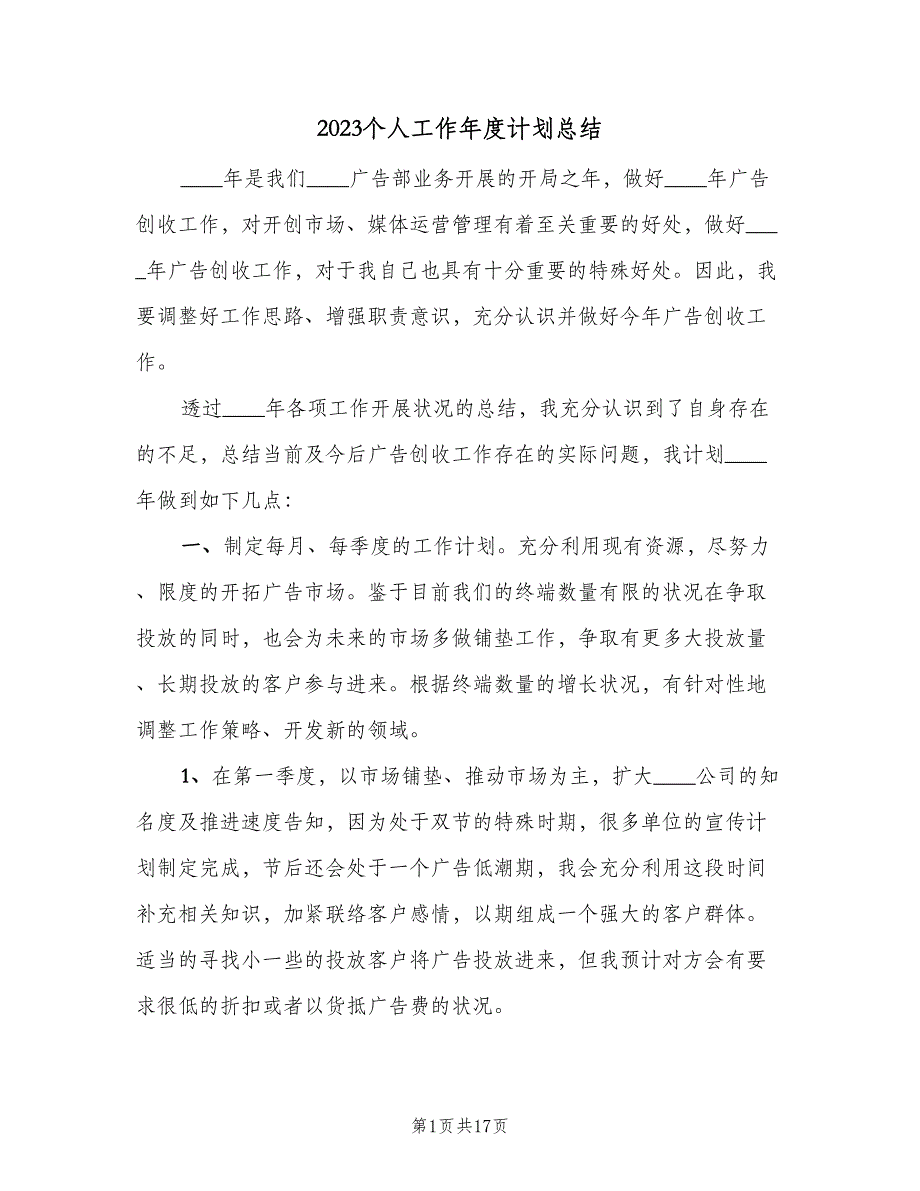 2023个人工作年度计划总结
____年是我们____广告部业务开展的开局之年，做好____年广告
创收工作，对开创市场、媒体运营管理有着至关重要的好处，做好___
_年广告创收工作，对于我自己也具有十分重要的特殊好处。因此，我
要调整好工作思路、增强职责意识，充分认识并做好今年广告创收工
作。
透过____年各项工作开展状况的总结，我充分认识到了自身存在
的不足，总结当前及今后广告创收工作存在的实际问题，我计划____
年做到如下几点：
一、制定每月、每季度的工作计划。充分利用现有资源，尽努力
、限度的开拓广告市场。鉴于目前我们的终端数量有限的状况在争取
投放的同时，也会为未来的市场多做铺垫工作，争取有更多大投放量
、长期投放的客户参与进来。根据终端数量的增长状况，有针对性地
调整工作策略、开发新的领域。
1、在第一季度，以市场铺垫、推动市场为主，扩大____公司的知
名度及推进速度告知，因为处于双节的特殊时期，很多单位的宣传计
划制定完成，节后还会处于一个广告低潮期，我会充分利用这段时间
补充相关知识，加紧联络客户感情，以期组成一个强大的客户群体。
适当的寻找小一些的投放客户将广告投放进来，但我预计对方会有要
求很低的折扣或者以货抵广告费的状况。
第1页共17页